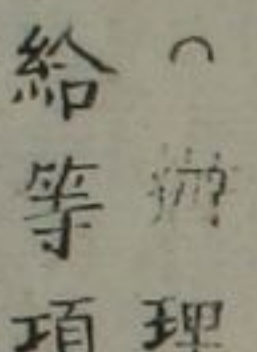 （理
給等項